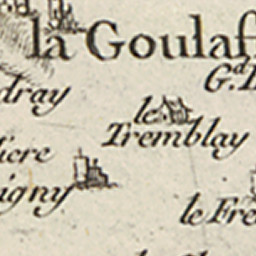 la Goulaf
G.d
dray
le
Tremblay
iere
igny
le Fre